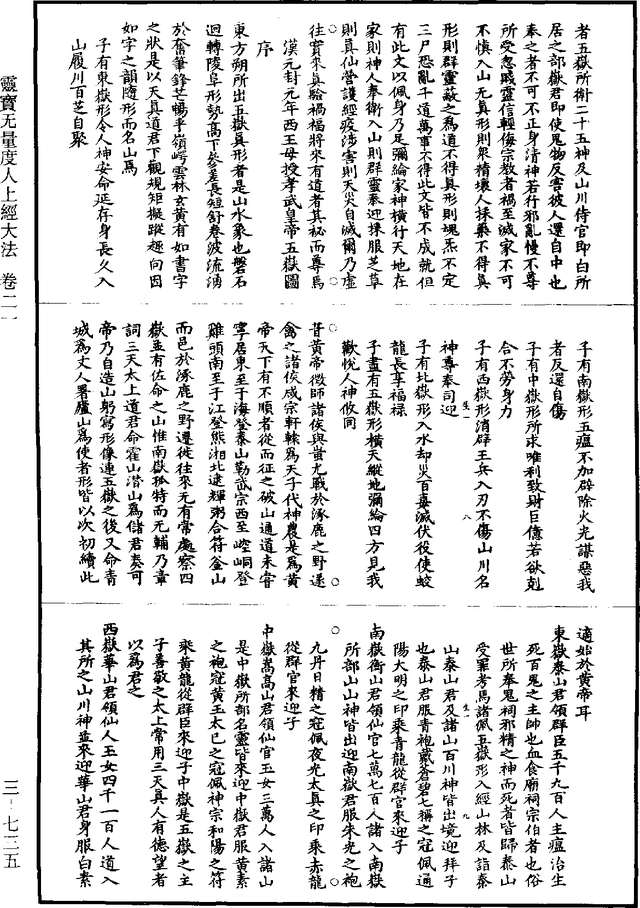 者五嶽所衛二十五神及山川侍官即白所
居之部嶽君即使鬼物反害彼人還自中也
奉之者不可不正身清神若行邪亂慢不尊
所受忽賤靈信輕侮宗教者禍至滅家不可
不慎入山无真形則衆精壞人採藥不得真
形則羣靈蔽之為道不得真形則塊炁不定
三尸恐亂千道萬事不得此文皆不成就但
有此文以佩身乃足彌綸家神橫行天地在
家則神人奉衛入山則群靈奉迎採服芝草
則真仙營護經疫涉害則天災自滅爾乃虛
往實來真貽禍福將來有道者其祕而尊焉
漢元封元年西王母授孝武皇帝五嶽圖
序
東方朔所出五嶽真形者是山水象也磐石
迴轉陵阜形勢高下參差長短舒卷波流湧
於奮筆鋒芒暢乎嶺崿雲林玄黃有如書字
之狀是以天真道君下觀規矩擬蹤趣向因
如字之韻隨形而名山焉
子有東嶽形令人神安命延存身長久入
山履川百芝自聚
靈寶无量度人上經大法 卷二一
子有南嶽形五瘟不加辟除火光謀惡我
者反還自傷
子有中嶽形所求唯利致財巨億若欲剋
合不勞身力
子有西嶽形消辟王兵入刃不傷山川名
神尊奉司迎
子有北嶽形入水却災百毒滅伏役使蛟
龍長享福祿
子盡有五嶽形橫天縱地彌綸四方見我
歡悅人神攸同
昔黃帝徵師諸侯與蚩尤戰於涿鹿之野遂
禽之諸侯咸宗軒轅為天子代神農是為黃
帝天下有不順者從而征之破山通道未嘗
寧居東至于海登泰山勒岱宗西至崆峒登
雞頭南至于江登熊湘北逮獯粥合符釜山
而邑於涿鹿之野遷徙往來无有常處察四
嶽並有佐命之山惟南嶽孤特而无輔乃章
詞三天太上道君命霍山潛山為儲君奏可
帝乃自造山躬寫形像連五嶽之後又命青
城為丈人署廬山為使者形皆以次初續此
適始於黃帝耳
東嶽泰山君領群臣五千九百人主瘟治生
死百鬼之主帥也血食廟祠宗伯者也俗
世所奉鬼祠邪精之神而死者皆歸泰山
受罪考焉諸佩五嶽形入經山林及詣泰
山泰山君及諸山百川神皆出境迎拜子
也泰山君服青袍戴蒼碧七稱之冠佩通
陽大明之印乘青龍從群官來迎子
南嶽衡山君領仙官七萬七百人諸入南嶽
所部山山神皆出迎南嶽君服朱光之袍
九丹日精之冠佩夜光太真之印乘赤龍
從群官來迎子
中嶽嵩高山君領仙官玉女三萬人入諸山
是中嶽所部名靈皆來迎中嶽君服黃素
之袍冠黃玉太乙之冠佩神宗和陽之符
乘黃龍從群臣來迎子中嶽是五嶽之主
子善敬之太上常用三天真人有德望者
以為君之
西嶽華山君領仙人玉女四千一百人道入
其所之山川神並來迎華山君身服白素
三-七三五